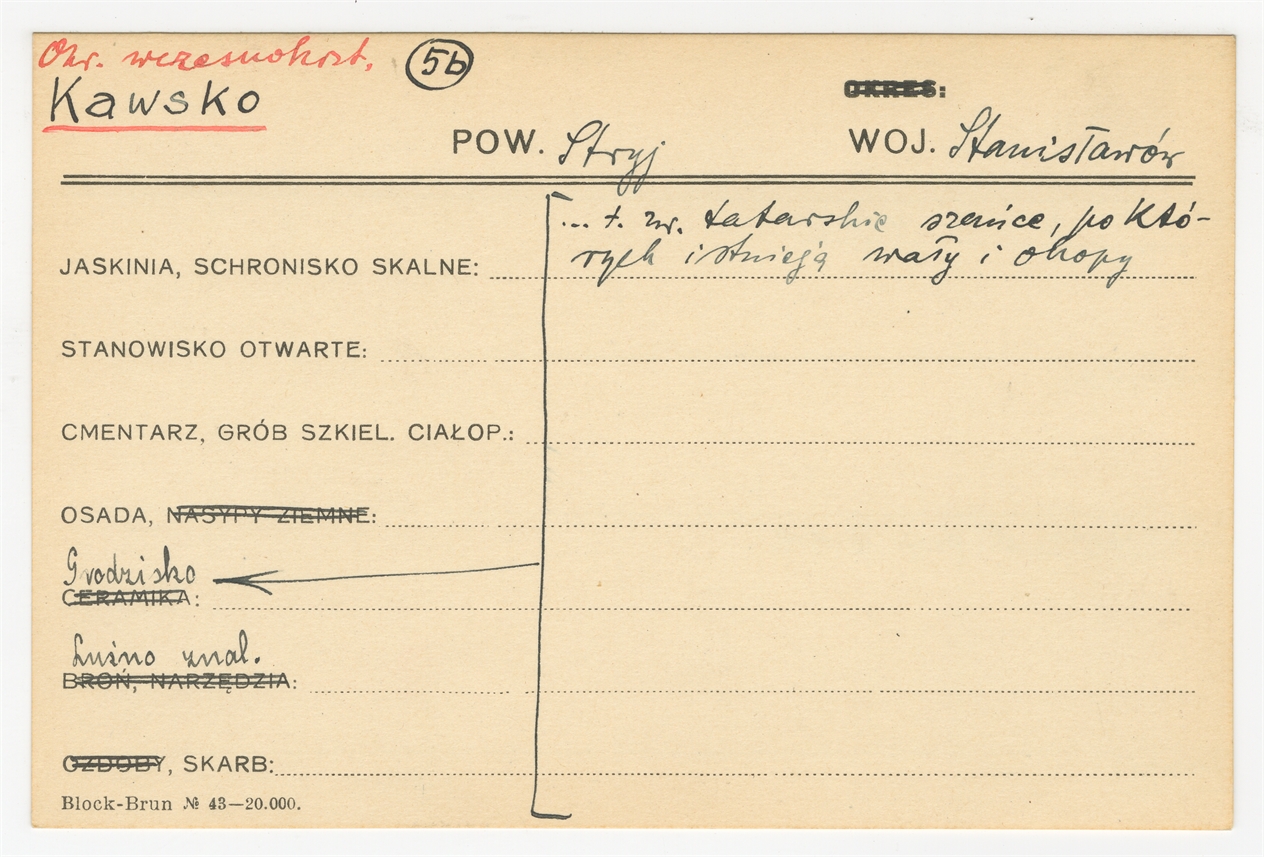 Okr. wczesnohist.
5b
Kawsko
OKRES:
POW. Stryj
WOJ. Stanisławów
... t. zw. tatarskie szańce, po któ-
rych istnieją wały i okopy
JASKINIA, SCHRONISKO SKALNE:
STANOWISKO OTWARTE:
CMENTARZ, GRÓB SZKIEL. CIAŁOP.:
OSADA, NASYPY ZIEMNE:
Grodzisko
CERAMIKA:
Luźno znal.
BROŃ, NARZĘDZIA:
OZDOBY, SKARB:
Block-Brun № 43—20.000.